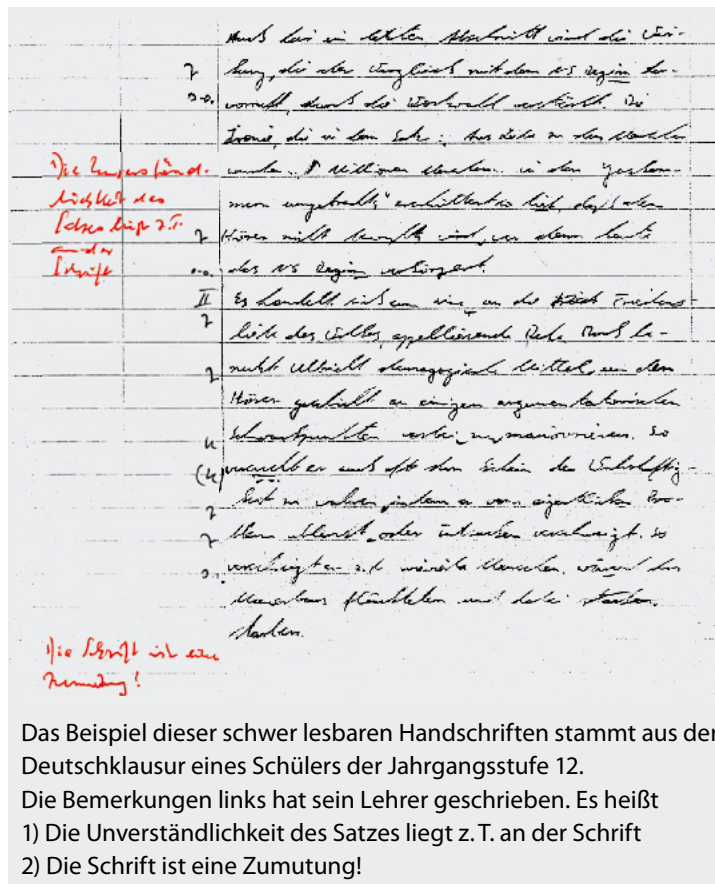 Auch hier im letzten Abschnitt wird die Wir-
kung, die der Vergleich mit dem NS Regim her-
vorruft, durch die Wortwahl verstärkt. Die
Ironie, die in dem Satz:
wurden Millionen Menschen in den
1) Die Unverständ-
lichkeit des
Satzes liegt z.T.
an der
Schrift
Hörer nicht wird, wer denn heute
das NS Regim verkörpert.
II Es handelt sich um eine, an die Friedens-
liebe des Volkes, appellierende Rede. Auch be-
nutzt Ulbricht demagogische Mittel, um den
Hörer geschickt an einigen argumentatorischen
Schwachpunkten vorbei zu manövrieren. So
versucht er auch oft den Schein der Wahrhaftig-
keit zu wahren, indem er vom eigentlichen Pro-
blem oder Tatsachen verschweigt. So
verschweigt er z.B. wieviele Menschen
Mauerbaus flüchteten und dabei starben.
starben.
Die Schrift ist eine
Zumutung!
Das Beispiel dieser schwer lesbaren Handschriften stammt aus der
Deutschklausur eines Schülers der Jahrgangsstufe 12.
Die Bemerkungen links hat sein Lehrer geschrieben. Es heißt
1) Die Unverständlichkeit des Satzes liegt z. T. an der Schrift
2) Die Schrift ist eine Zumutung!